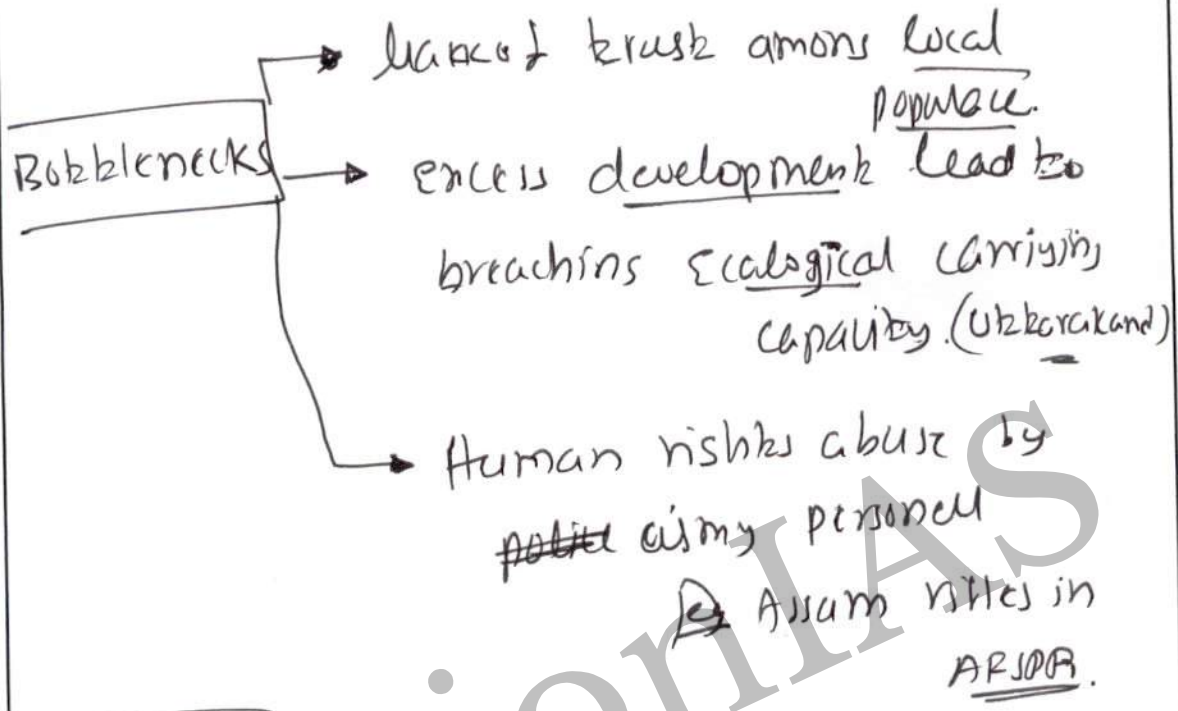 lack of trust among local
populace.
Bottlenecks
excess development lead to
breaching Ecalogical carriying
capacity. (Uttarakand)
Human rights abuse by
police army personell
Eg Assam rifles in
AFSPA.
ionIAS